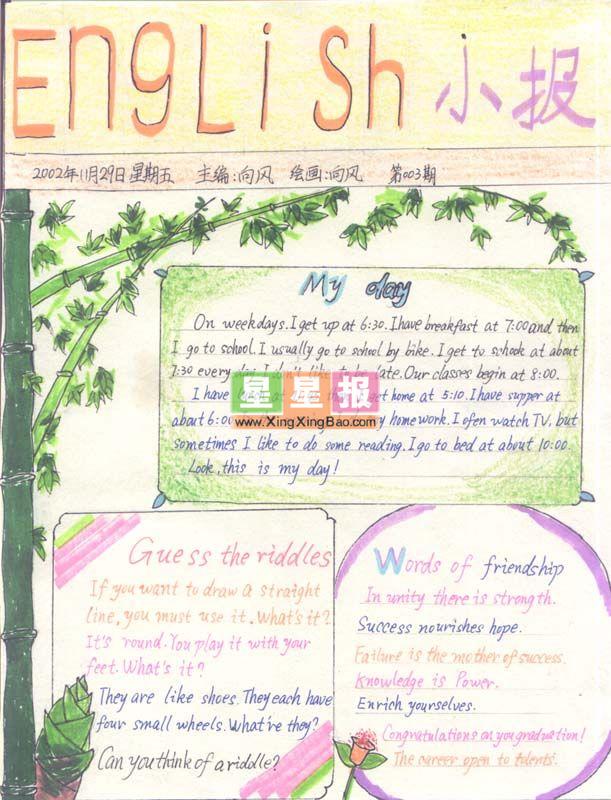 EngLiSh 小报
2002年11月29日 星期五 主编:向风 绘画:向风 第003期
My day
On weekdays. I get up at 6:30. I have breakfast at 7:00 and then
I go to school. I usually go to school by bike. I get to schook at about
7:30 every day. I don't like to be late. Our classes begin at 8:00.
I have lunch at get home at 5:10. I have supper at
about 6:00 my homework. I ofen watch TV, but
sometimes I like to do some reading. I go to bed at about 10:00.
Look, this is my day!
星星报
www.XingXingBao.com
Guess the riddles
If you want to draw a straight
line, you must use it. What's it?
It's round. You play it with your
feet. What's it?
They are like shoes. They each have
four small wheels. What're they?
Can you think of a riddle?
Words of friendship
In unity there is strength.
Success nourishes hope.
Failure is the mother of success.
Knowledge is Power.
Enrich yourselves.
Congratulations on you graduation!
The career open to talents.